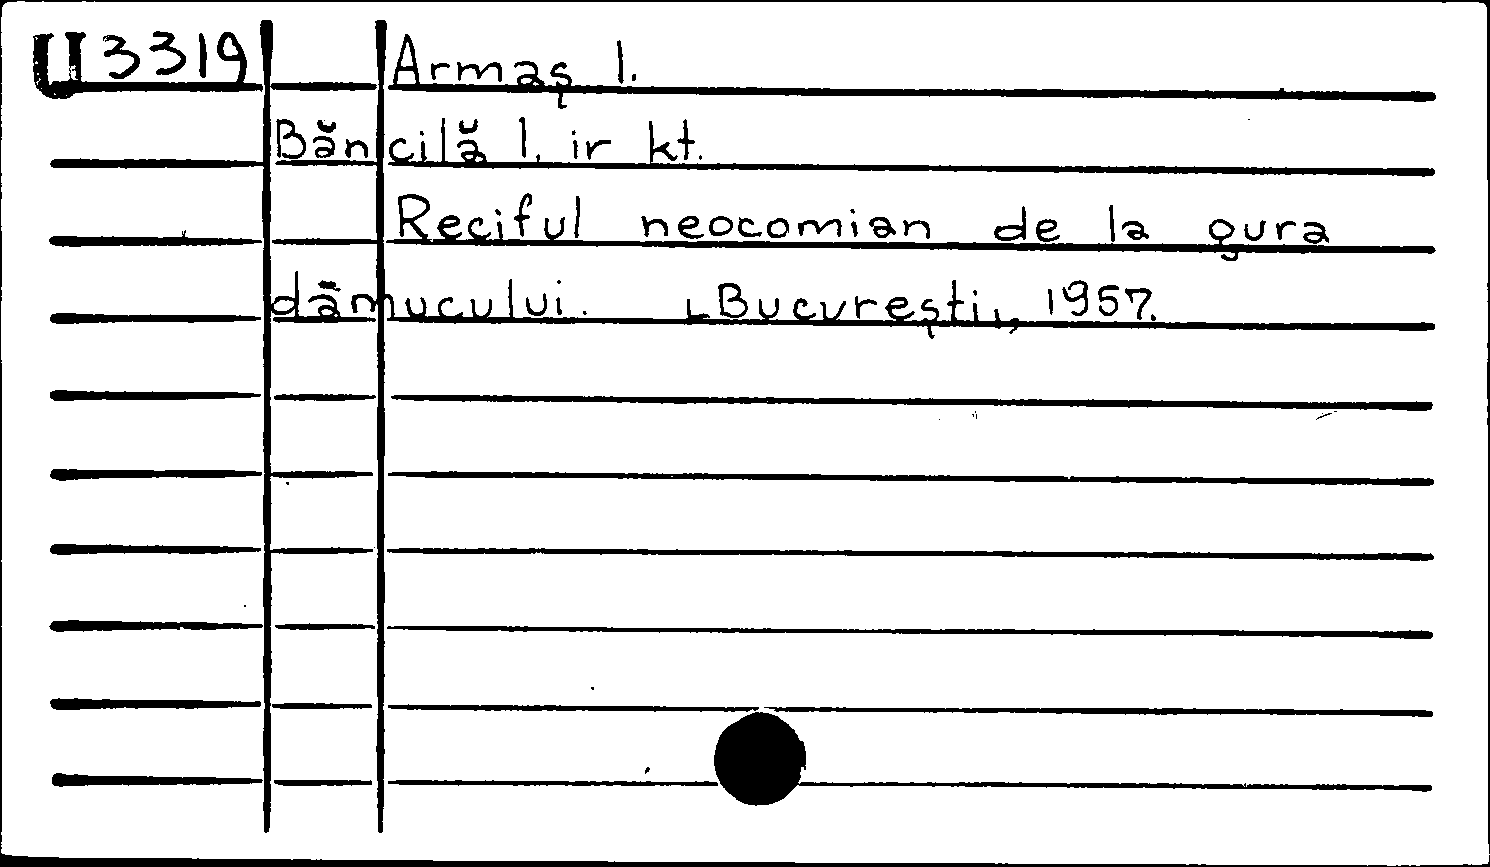 U 3319 Armaş I.
Băncilă I. ir kt.
Reciful neocomian de la gura
dămucului. ⌞Bucureşti⌟, 1957.